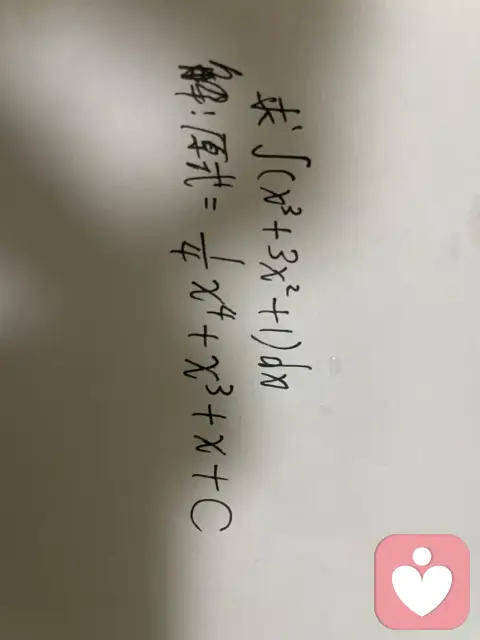 求 ∫(x³+3x²+1)dx
解:原式 = 1/4 x⁴+x³+x+C